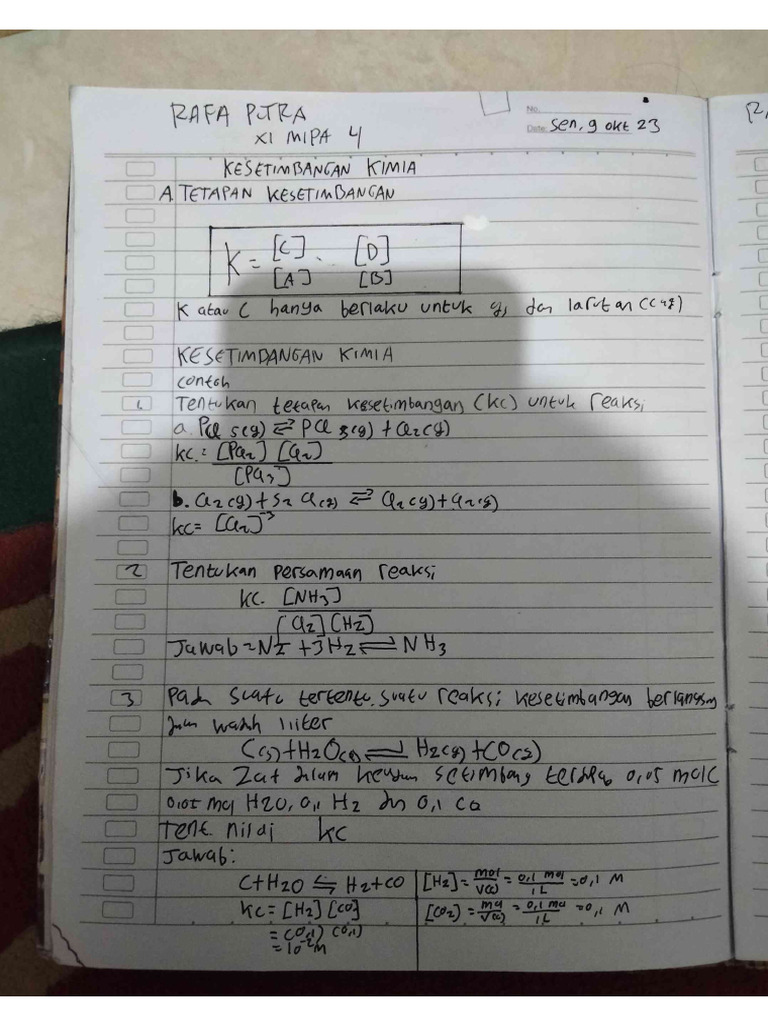 RAFA PUTRA
XI MIPA 4
No.
Date: Sen, 9 okt 23
KESETIMBANGAN KIMIA
A. TETAPAN KESETIMBANGAN
K = [C] . [D]
[A] [B]
K atau C hanya berlaku untuk g, dan larutan (aq)
KESETIMBANGAN KIMIA
contoh
1. Tentukan tetapan kesetimbangan (kc) untuk reaksi
a. PCl 5(g) ⇌ PCl 3(g) + Cl2(g)
kc =
b.
kc = [Cl2]⁻³
2 Tentukan persamaan reaksi
kc. [NH3]
[Cl2] [H2]
Jawab = N2 + 3H2 ⇌ NH3
3 Pada suatu tertentu. suatu reaksi kesetimbangan berlangsung
dalam wadah 1 liter
C(s) + H2O(g) ⇌ H2(g) + CO(g)
Jika Zat dalam keadaan setimbang terdapat 0,05 mol C
0,05 mol H2O, 0,1 H2 dn 0,1 CO
Tent. nilai kc
Jawab:
C + H2O ⇌ H2 + CO
kc = [H2] [CO]
= (0,1) (0,1)
= 10⁻² M
[H2] = mol/V(L) = 0,1 mol/1L = 0,1 M
[CO2] = mol/V(L) = 0,1 mol/1L = 0,1 M